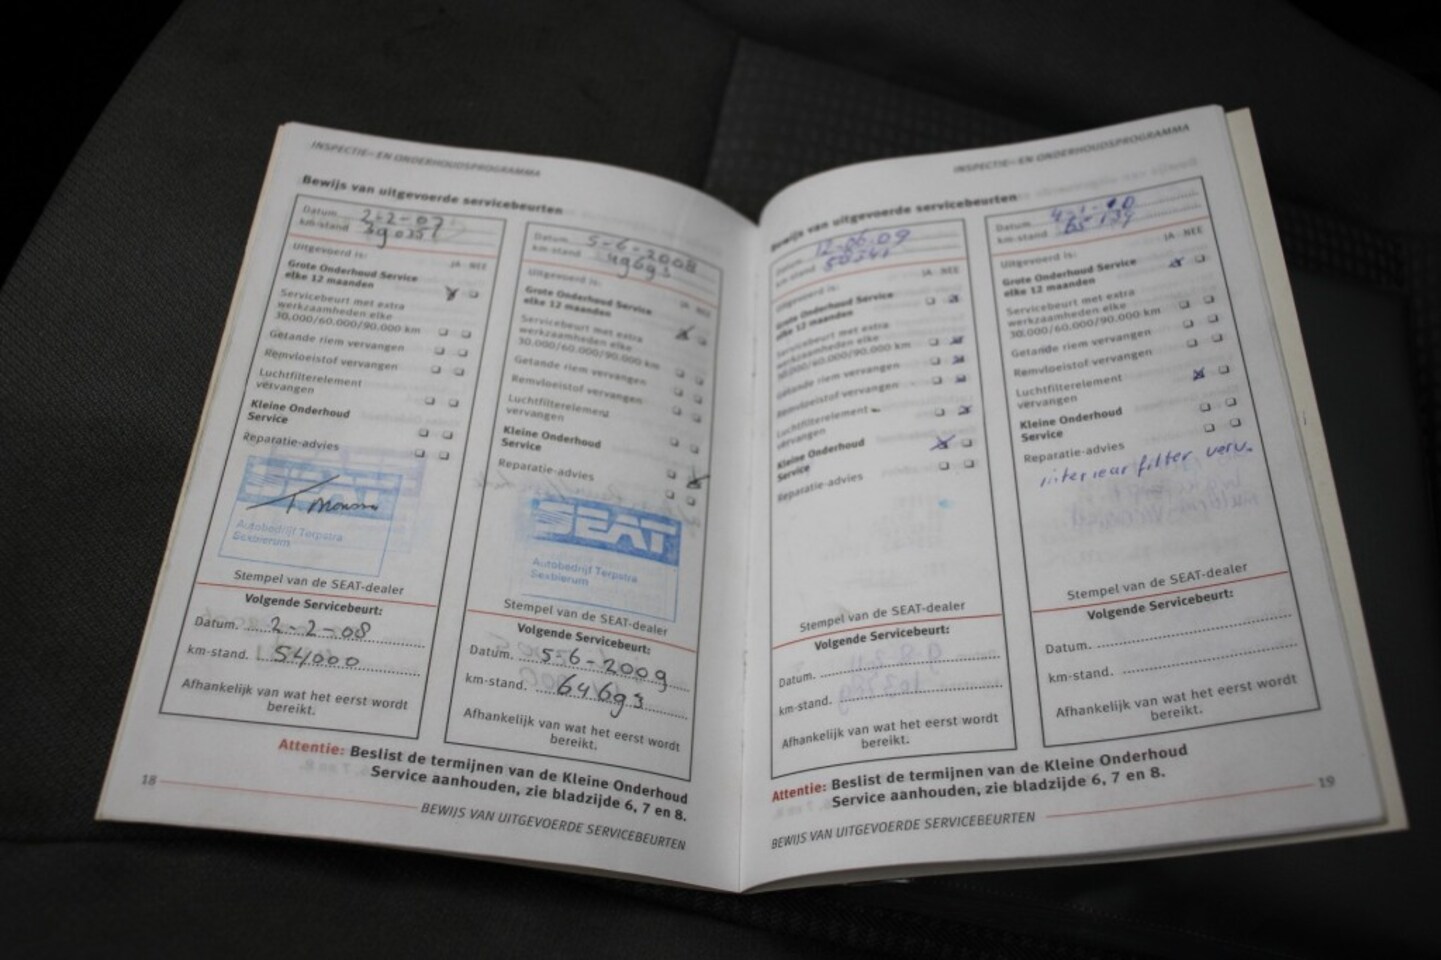 INSPECTIE- EN ONDERHOUDSPROGRAMMA
Bewijs van uitgevoerde servicebeurten
Datum. 2-2-07
km-stand 39035
Uitgevoerd is: JA NEE
Grote Onderhoud Service
elke 12 maanden
Servicebeurt met extra
werkzaamheden elke
30.000/60.000/90.000 km
Getande riem vervangen
Remvloeistof vervangen
Luchtfilterelement
vervangen
Kleine Onderhoud
Service
Reparatie-advies
SEAT
Autobedrijf Terpstra
Sexbierum
Stempel van de SEAT-dealer
Volgende Servicebeurt:
Datum. 2-2-08
km-stand. 54000
Afhankelijk van wat het eerst wordt
bereikt.
Datum. 5-6-2008
km-stand 49693
Uitgevoerd is: JA NEE
Grote Onderhoud Service
elke 12 maanden
Servicebeurt met extra
werkzaamheden elke
30.000/60.000/90.000 km
Getande riem vervangen
Remvloeistof vervangen
Luchtfilterelement
vervangen
Kleine Onderhoud
Service
Reparatie-advies
SEAT
Autobedrijf Terpstra
Sexbierum
Stempel van de SEAT-dealer
Volgende Servicebeurt:
Datum. 5-6-2009
km-stand. 64693
Afhankelijk van wat het eerst wordt
bereikt.
Attentie: Beslist de termijnen van de Kleine Onderhoud
Service aanhouden, zie bladzijde 6, 7 en 8.
18
BEWIJS VAN UITGEVOERDE SERVICEBEURTEN
INSPECTIE- EN ONDERHOUDSPROGRAMMA
Bewijs van uitgevoerde servicebeurten
Datum. 12-06-09
km-stand
Uitgevoerd is: JA NEE
Grote Onderhoud Service
elke 12 maanden
Servicebeurt met extra
werkzaamheden elke
30.000/60.000/90.000 km
Getande riem vervangen
Remvloeistof vervangen
Luchtfilterelement
vervangen
Kleine Onderhoud
Service
Reparatie-advies
Stempel van de SEAT-dealer
Volgende Servicebeurt:
Datum.
km-stand.
Afhankelijk van wat het eerst wordt
bereikt.
Datum.
km-stand
Uitgevoerd is: JA NEE
Grote Onderhoud Service
elke 12 maanden
Servicebeurt met extra
werkzaamheden elke
30.000/60.000/90.000 km
Getande riem vervangen
Remvloeistof vervangen
Luchtfilterelement
vervangen
Kleine Onderhoud
Service
Reparatie-advies
interieur filter verv.
Stempel van de SEAT-dealer
Volgende Servicebeurt:
Datum.
km-stand.
Afhankelijk van wat het eerst wordt
bereikt.
Attentie: Beslist de termijnen van de Kleine Onderhoud
Service aanhouden, zie bladzijde 6, 7 en 8.
19
BEWIJS VAN UITGEVOERDE SERVICEBEURTEN